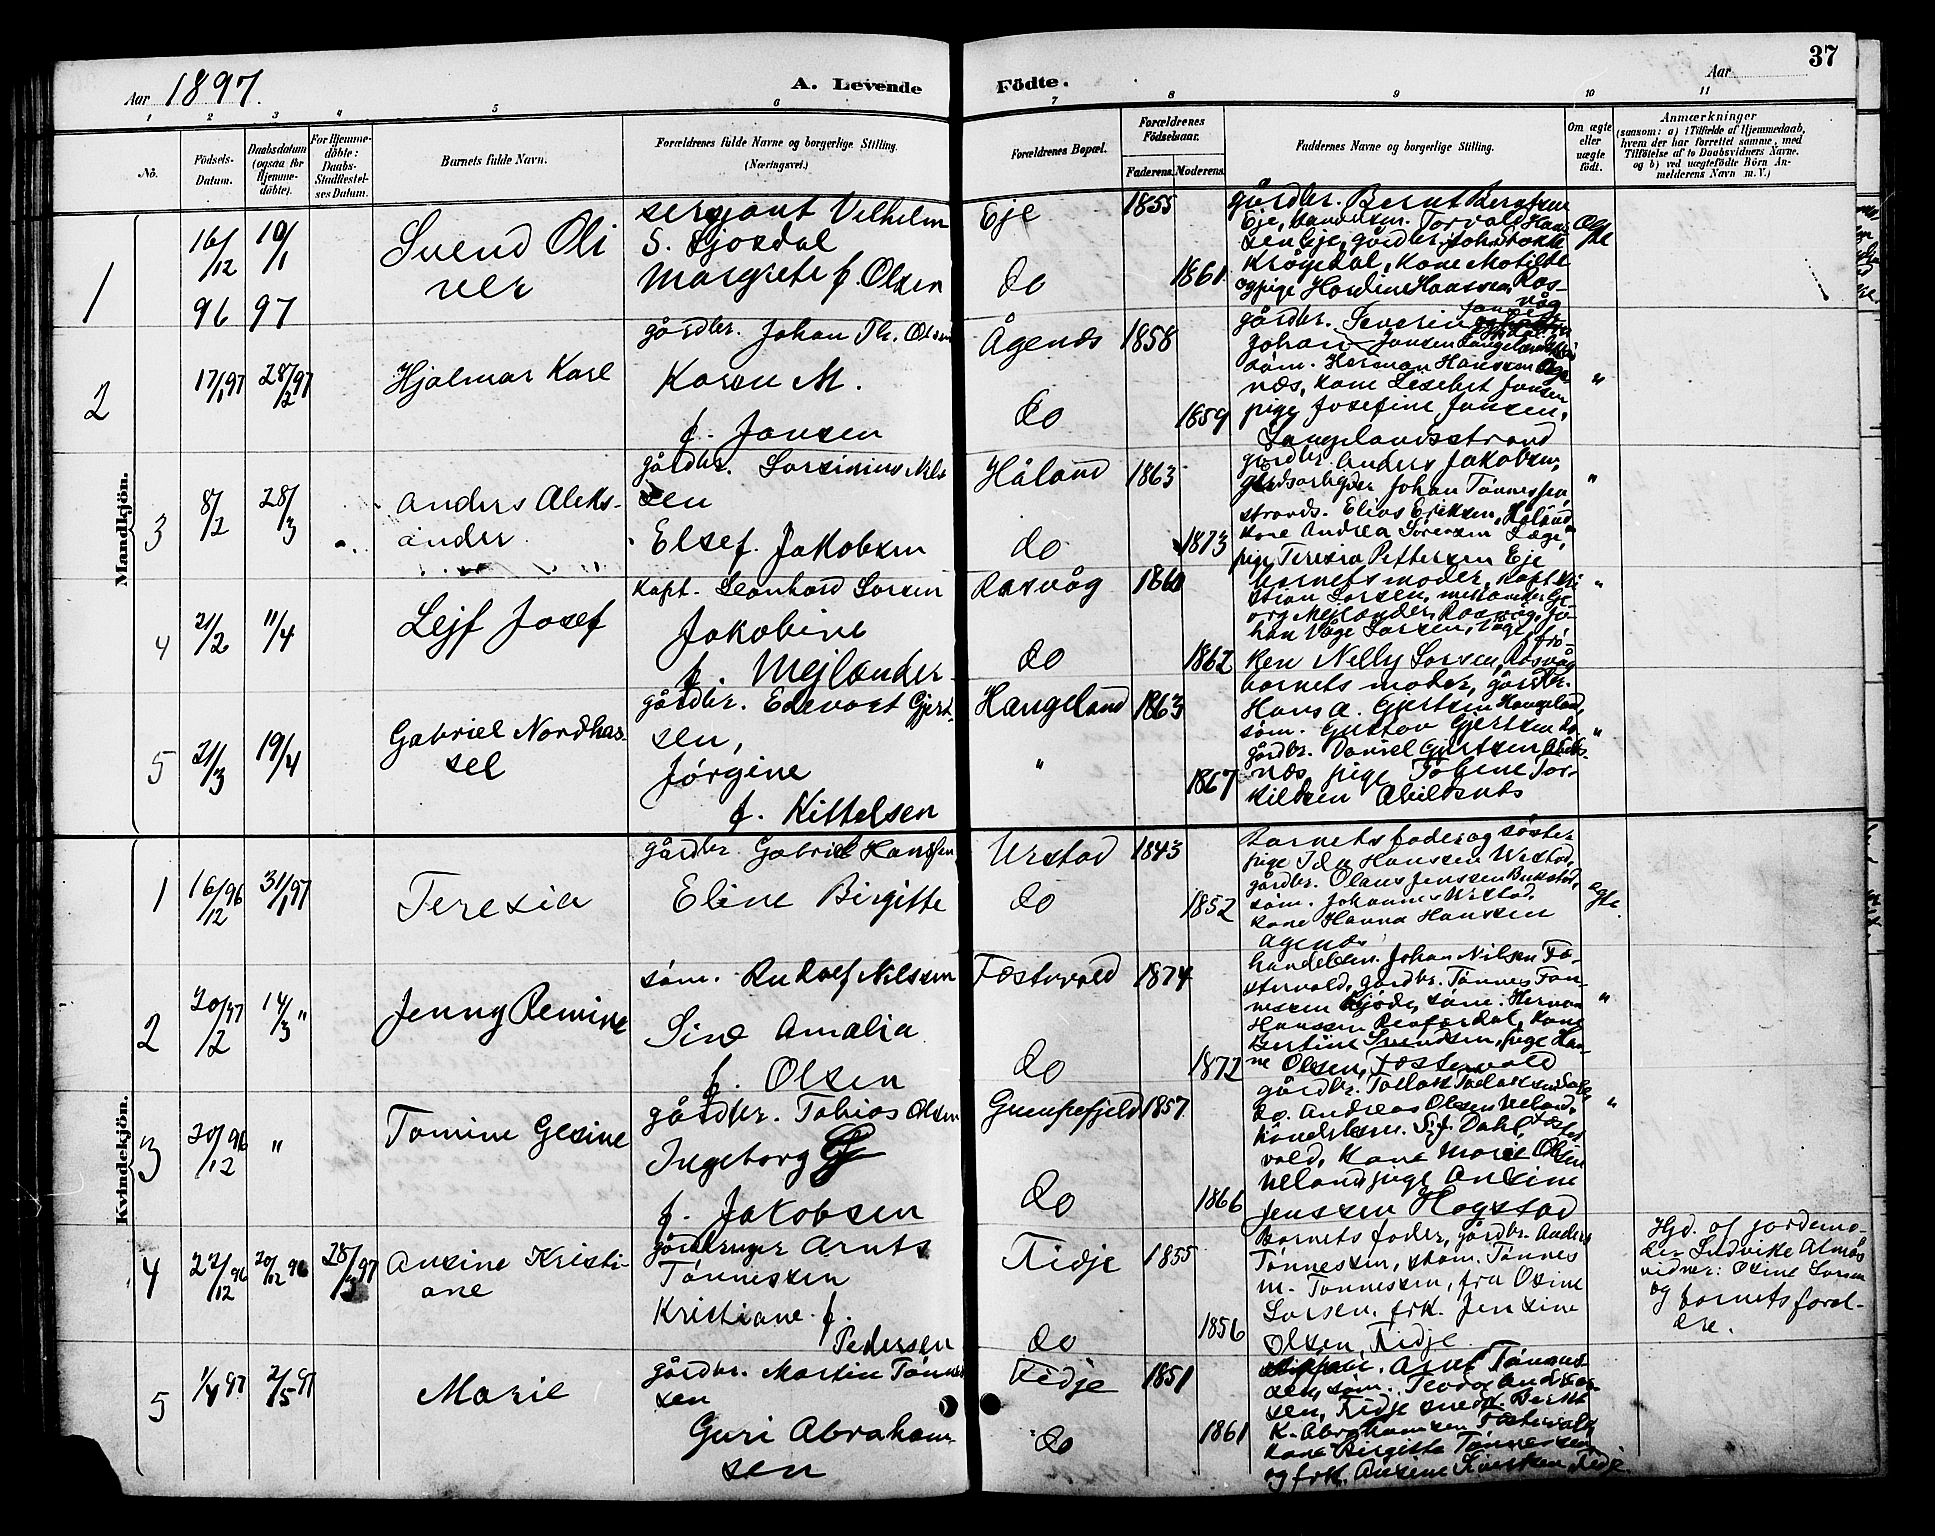 37
Aar 1897.
A. Levende
Födte.
Aar
1 2 3 4 5 6 7 8 9 10 11
No.
Födsels-
Datum.
Daabsdatum
(ogsaa for
Hjemme-
döbte).
For Hjemme-
döbte:
Daabs-
Stadfæstel-
ses Datum.
Barnets fulde Navn.
Forældrenes fulde Navne og borgerlige Stilling.
(Næringsvei.)
Forældrenes Bopæl.
Forældrenes
Födselsaar.
Faderens. Moderens.
Faddernes Navne og borgerlige Stilling.
Om ægte
eller
uægte
födt.
Anmærkninger
(saasom: a) i Tilfælde af Hjemmedaab,
hvem der har forrettet samme, med
Tilföielse af to Daabsvidners Navne,
og b) ved uægtefödte Börn An-
melderens Navn m. V.)
Mandkjön.
1
16/12 96
10/1 97
Svend Oli
ver
sersjant Vilhelm
S. Sjosdal
Margrete f. Olsen
Eje
do
1855
1861
gårdbr. Bernt Berntsen
Eje, handelsm. Torvald Han
sen Eje, gårdbr.
Krågedal, kone Matilde
og pige Hansen, Ros-
våg
Ægte
2
17/1 97
28/2 97
Hjalmar Karl
gårdbr. Johan Th. Olsen
Karen M.
f. Jansen
Ågenes
do
1858
1859
gårdbr. Severin
Johan Jansen
søm. Herman Hansen Åge
næs, kone Lisebet Jansen
pige Josefine Jansen,
Langelandsstrand
"
3
8/2
28/3
Anders Aleks-
ander
gårdbr. Lorsinius Nils
sen
Else f. Jakobsen
Håland
do
1863
1873
gårdbr. Anders Jakobsen,
Johan Tønnessen,
strands. Elias Eriksen, Håland
kone Andrea Sørensen Læge,
pige Teresia Pettersen Eje
"
4
21/2
11/4
Lejf Josef
kapt. Leonhard Larsen
Jakobine
f. Mejlænder
Rasvåg
do
1860
1862
barnets moder, kapt. Kri
stian Larsen, Mejlænder Ge-
org Mejlænder, Rasvåg, Jo-
han Våge Larsen, Våge, frø-
ken Nelly Larsen, Rasvåg
"
5
21/3
19/4
Gabriel Nordhas-
sel
gårdbr. Edevart Gjert-
sen,
Jørgine
f. Kittelsen
Haugeland
"
1863
1867
barnets moder, gårdbr.
Hans A. Gjertsen Haugeland,
søm. Gustav Gjertsen do
gårdbr. Daniel Gjertsen Abelds-
næs, pige Tobine Tor-
kildsen Abeldsnæs
"
Kvindekjön.
1
16/12 96
31/1 97
Teresia
gårdbr. Gabriel Hanssen,
Eline Birgitte
Urstad
do
1843
1852
Barnets fader og søster
pige Ida Hanssen Urstad,
gårdbr. Olaus Jenssen Bukstad,
søm. Johannes Urstad,
kone Hanna Hanssen
Agenæs
ægte.
2
20/12 97
14/3 "
Jenny Remine
søm. Rudolf Nilssen
Sine Amalia
f. Olsen
Fostervold
do
1874
1872
handelsm. Johan Nilsen Fo-
stervold, gårdbr. Tønnes Tøn-
nessen, søm. Herman
Hanssen, kone
Bertine Svendsen, pige Han-
ne Olsen, Fostervold
"
3
20/12 96
"
Tomine Gesine
gårdbr. Tobias Olsen
Ingeborg
f. Jakobsen
Gumpefjeld
do
1857
1866
gårdbr. Tollak Tollaksen
do. Andreas Olsen Ueland,
handelsm. Sig. Dahl, Foster
vold, kone Marie Olsen
Ueland, pige Ansine
Jenssen Hogstad
"
4
22/12 96
20/12 96
28/3 97
Ansine Kristi-
ane
gårdbruger Arnts
Tønnessen
Kristiane f.
Pedersen
Kidje
do
1855
1856
Barnets fader, gårdbr. Anders
Tønnessen, skom. Tønnes
M. Tønnessen, fru Osine
Larsen, frk. Jensine
Olsen, Kidje
Hjd. af jordemo-
der Ludvikke Almås
vidner: Osine Larsen
og barnets foræl-
dre.
5
1/4 97
2/5 97
Marie
gårdbr. Martin Tønnes
sen
Guri Abraham-
sen
Kidje
do
1851
1861
Arnt Tønnes-
sen, søm. Teodor Andreas-
sen, Kidje snedk. Berthl
K. Abrahamsen Fostervold,
kone Birgitta Tønnessen
og frk. Ansine Kidje.